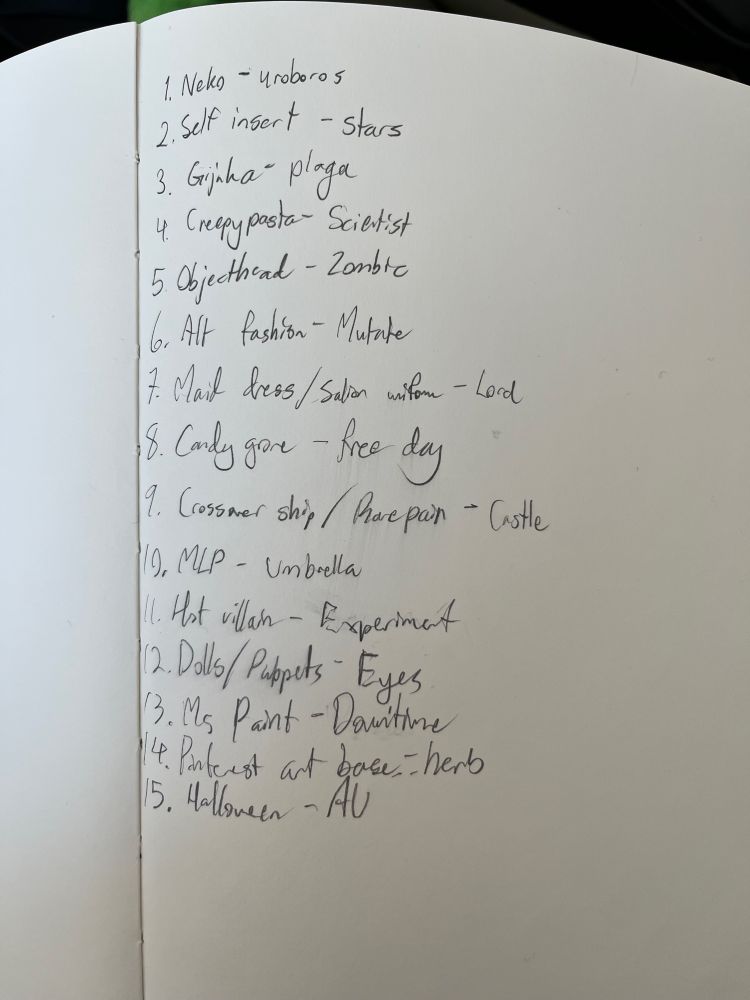 1. Neko - uroboros
2. Self insert - Stars
3. Gijnka - plaga
4. Creepypasta - Scientist
5. Objecthead - Zombie
6. Alt fashion - Mutate
7. Maid dress/Salior uniform - Lord
8. Candy gore - free day
9. Crossover ship/Rarepair - Castle
10. MLP - Umbrella
11. Hot villain - Experiment
12. Dolls/Puppets - Eyes
13. Ms Paint - Downtime
14. Pinterest art base - herb
15. Halloween - AU